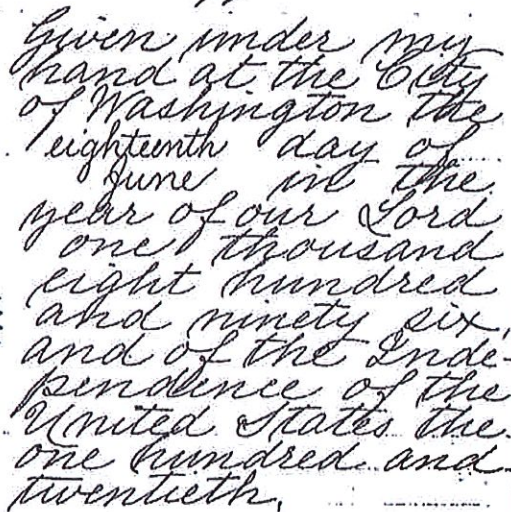 Given under my
hand at the City
of Washington the
eighteenth day of
June in the
year of our Lord
one thousand
eight hundred
and ninety six,
and of the Inde-
pendence of the
United States the
one hundred and
twentieth.